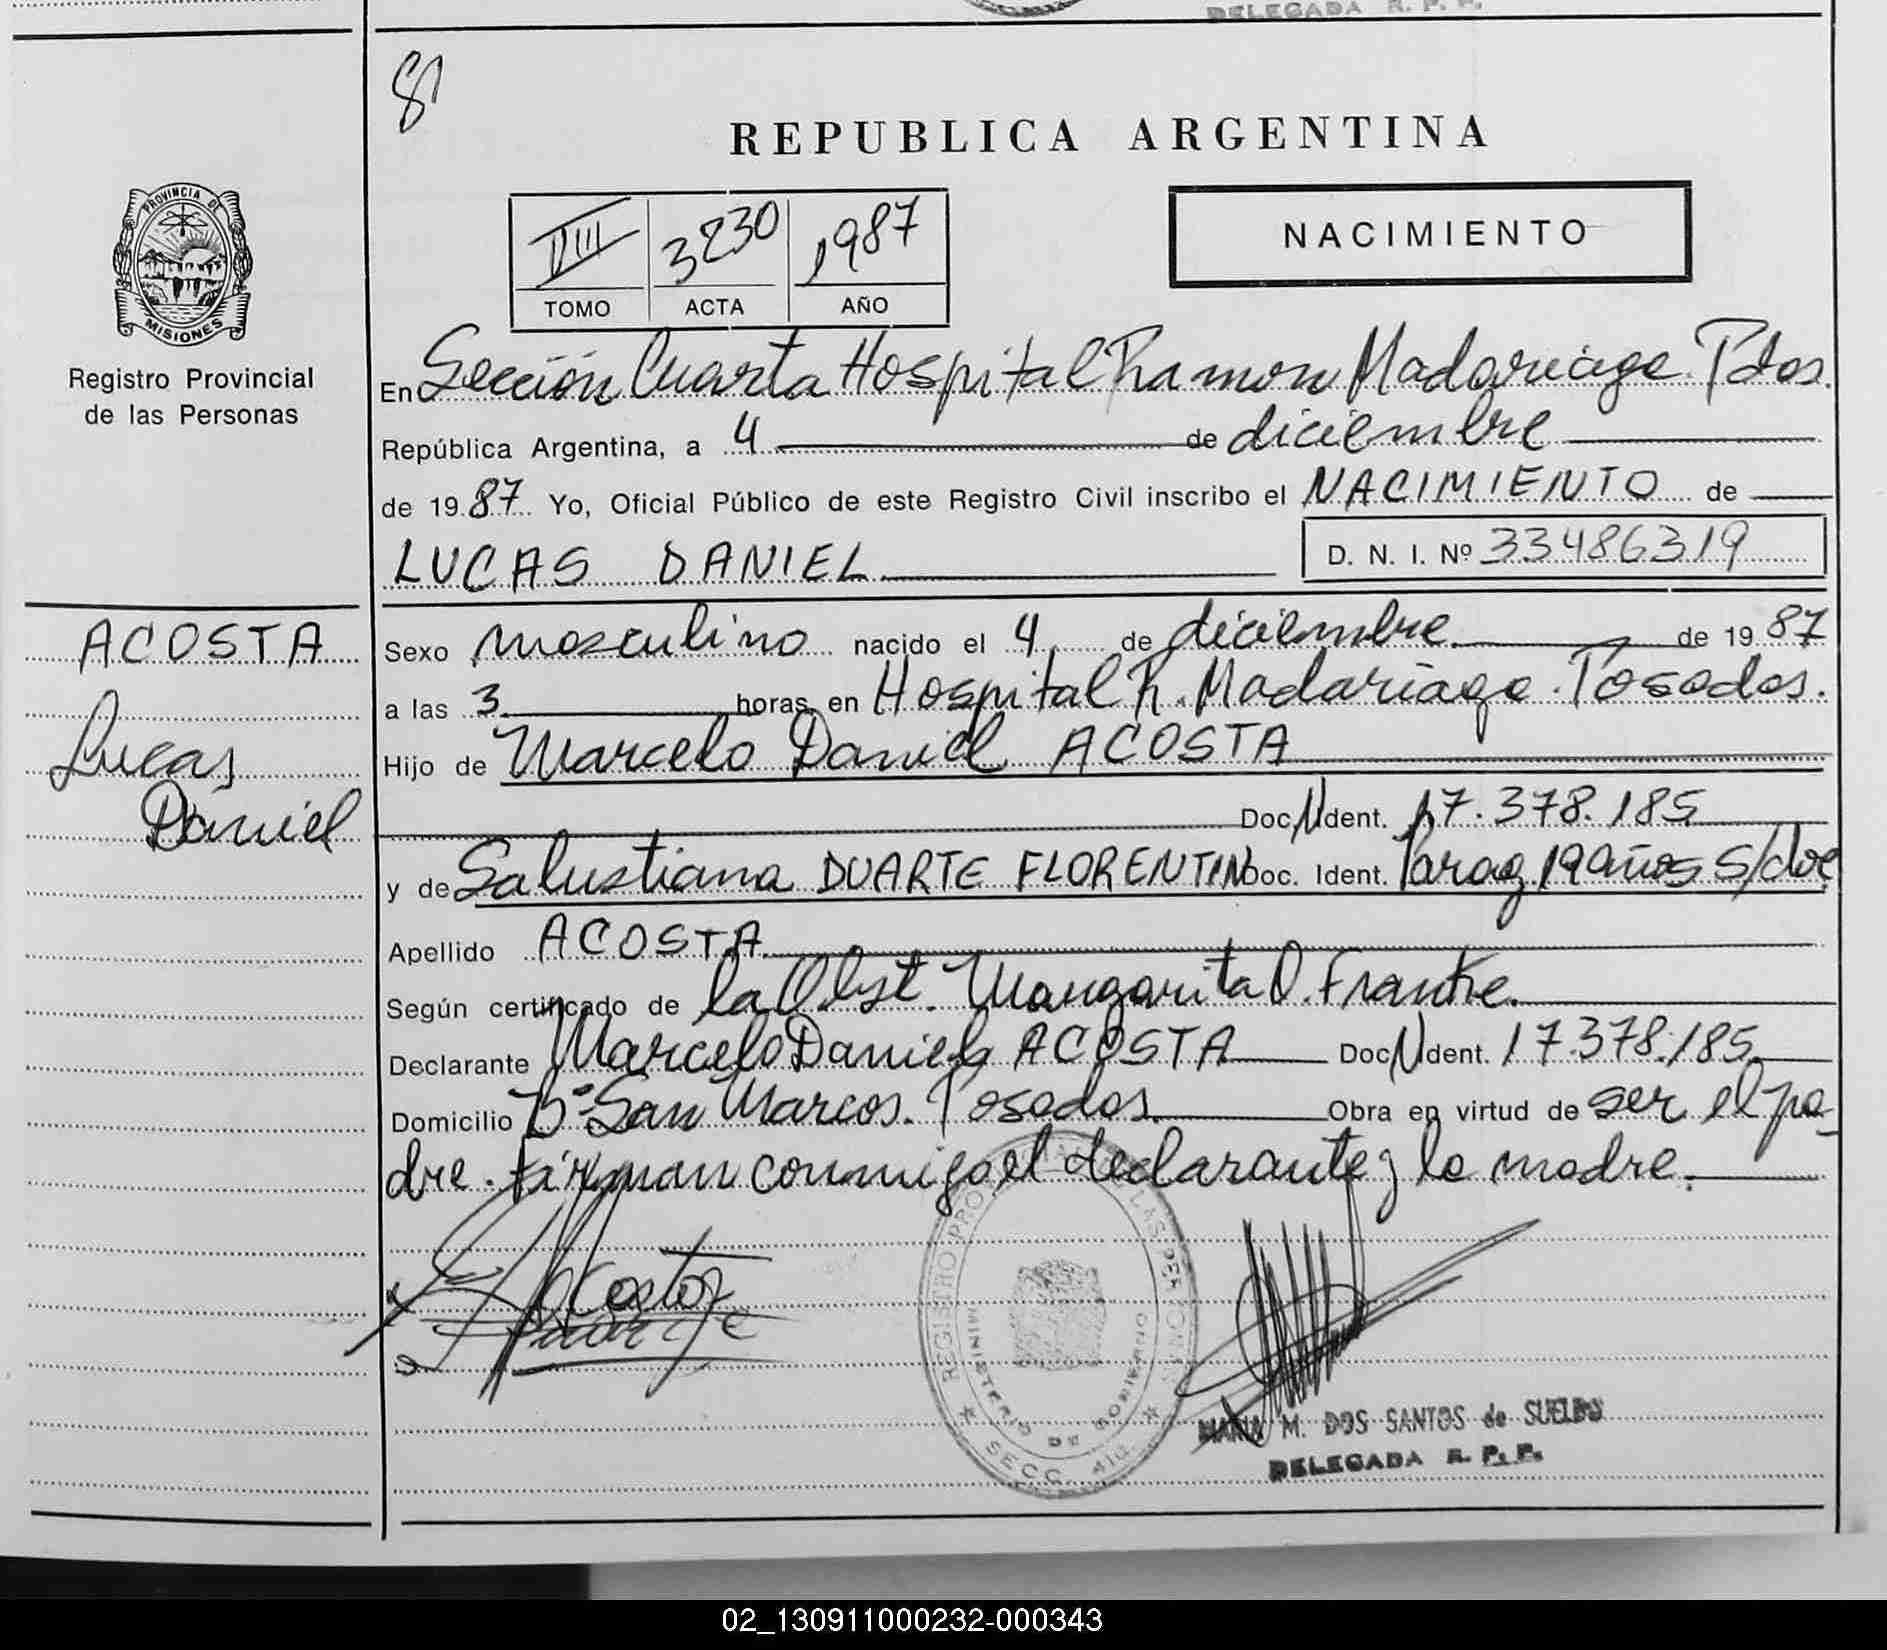 DELEGADA R. P. P.
8
REPUBLICA ARGENTINA
PROVINCIA DE
MISIONES
Registro Provincial
de las Personas
VIII 3230 1987
TOMO ACTA AÑO
NACIMIENTO
En Sección Cuarta Hospital Ramon Madariaga. Pdas.
República Argentina, a 4 de diciembre
de 1987 Yo, Oficial Público de este Registro Civil inscribo el NACIMIENTO de
LUCAS DANIEL
D. N. I. Nº 33486319
ACOSTA
Lucas
Daniel
Sexo masculino nacido el 4 de diciembre de 1987
a las 3 horas, en Hospital R. Madariaga. Posadas.
Hijo de Marcelo Daniel ACOSTA
Doc. N Ident. 17.378.185
y de Salustiana DUARTE FLORENTIN Doc. Ident. Parag. 19 años S/doc
Apellido ACOSTA
Según certificado de la Obst. Margarita O. Franke.
Declarante Marcelo Daniel ACOSTA Doc. N Ident. 17.378.185
Domicilio Bº San Marcos. Posadas. Obra en virtud de ser el pa-
dre. firman conmigo el declarante y la madre.
Acosta
REGISTRO PROVINCIAL DE LAS PERSONAS
MINISTERIO DE GOBIERNO
SECC. 4ta
MARIA M. DOS SANTOS de SUELDO
DELEGADA R. P. P.
02_130911000232-000343